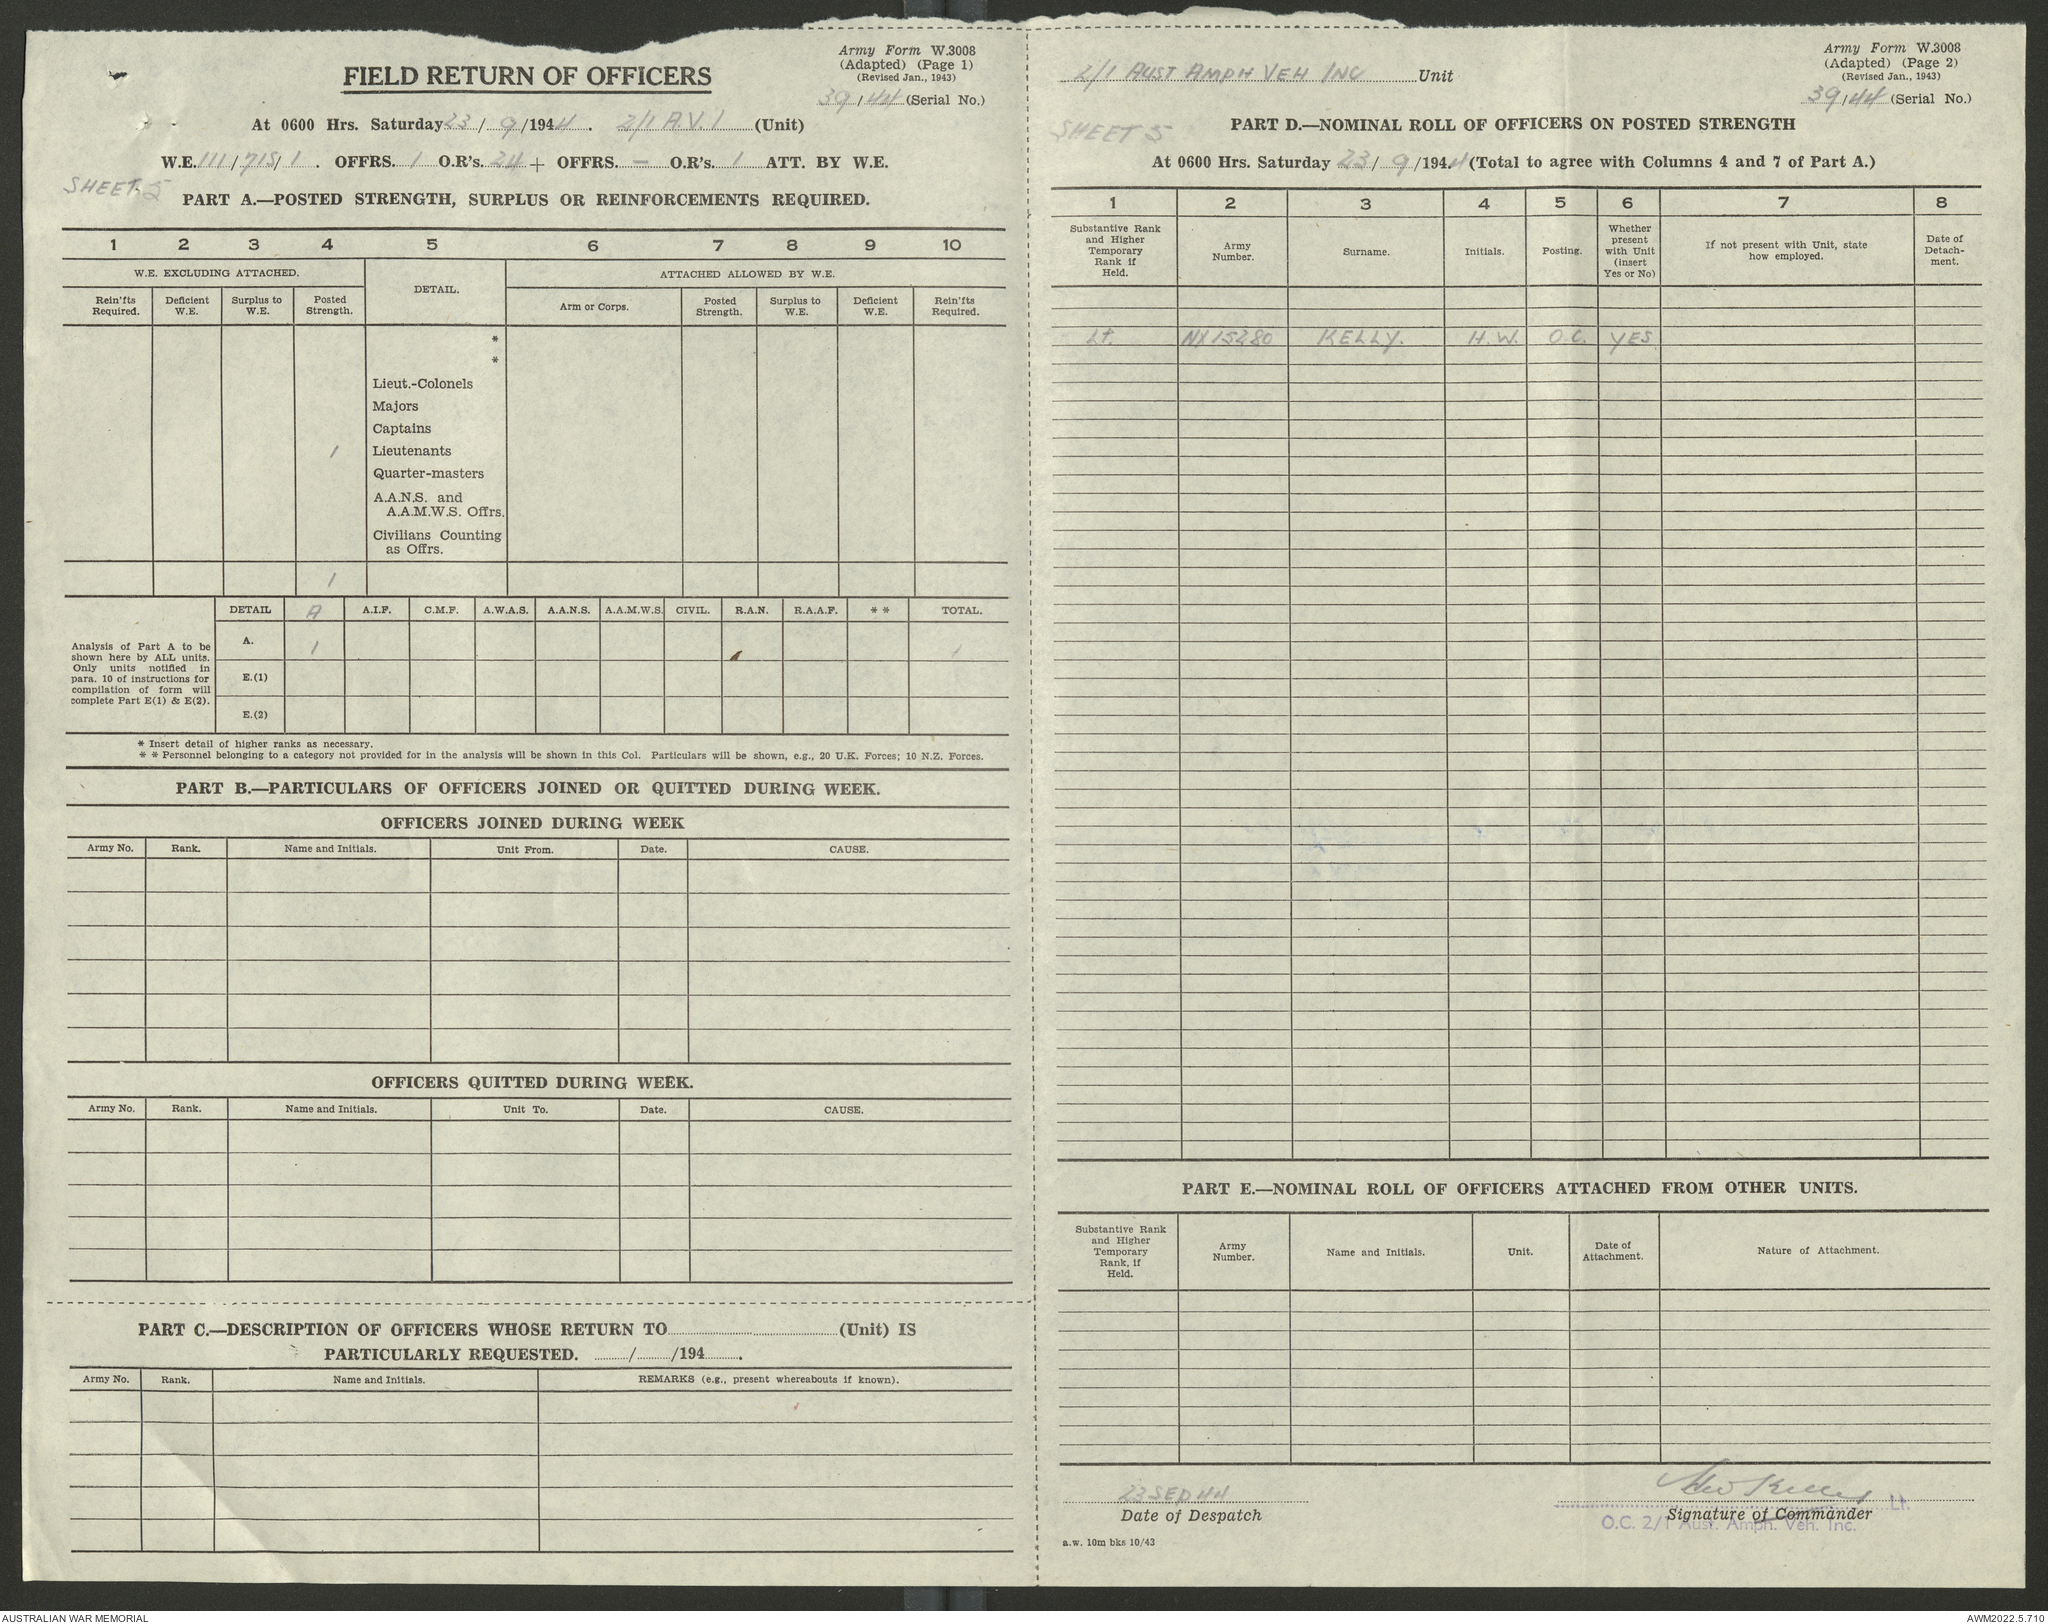 Army Form W.3008
(Adapted) (Page 1)
(Revised Jan., 1943)
39/44 (Serial No.)
FIELD RETURN OF OFFICERS
At 0600 Hrs. Saturday 23/9/1944. 2/1 A.V.I (Unit)
W.E. 111/715/1. OFFRS. 1 O.R's. 24 + OFFRS. — O.R's. 1 ATT. BY W.E.
SHEET 5
PART A.—POSTED STRENGTH, SURPLUS OR REINFORCEMENTS REQUIRED.
1 2 3 4 5 6 7 8 9 10
W.E. EXCLUDING ATTACHED. DETAIL. ATTACHED ALLOWED BY W.E.
Rein'fts Required. Deficient W.E. Surplus to W.E. Posted Strength. Arm or Corps. Posted Strength. Surplus to W.E. Deficient W.E. Rein'fts Required.
*
*
Lieut.-Colonels
Majors
Captains
1 Lieutenants
Quarter-masters
A.A.N.S. and
A.A.M.W.S. Offrs.
Civilians Counting
as Offrs.
1
DETAIL A A.I.F. C.M.F. A.W.A.S. A.A.N.S. A.A.M.W.S. CIVIL. R.A.N. R.A.A.F. * * TOTAL.
Analysis of Part A to be
shown here by ALL units.
Only units notified in
para. 10 of instructions for
compilation of form will
complete Part E(1) & E(2).
A. 1 1
E.(1)
E.(2)
* Insert detail of higher ranks as necessary.
* * Personnel belonging to a category not provided for in the analysis will be shown in this Col. Particulars will be shown, e.g., 20 U.K. Forces; 10 N.Z. Forces.
PART B.—PARTICULARS OF OFFICERS JOINED OR QUITTED DURING WEEK.
OFFICERS JOINED DURING WEEK
Army No. Rank. Name and Initials. Unit From. Date. CAUSE.
OFFICERS QUITTED DURING WEEK.
Army No. Rank. Name and Initials. Unit To. Date. CAUSE.
PART C.—DESCRIPTION OF OFFICERS WHOSE RETURN TO (Unit) IS
PARTICULARLY REQUESTED. / /194 .
Army No. Rank. Name and Initials. REMARKS (e.g., present whereabouts if known).
2/1 AUST AMPH VEH INC Unit
Army Form W.3008
(Adapted) (Page 2)
(Revised Jan., 1943)
39/44 (Serial No.)
SHEET 5
PART D.—NOMINAL ROLL OF OFFICERS ON POSTED STRENGTH
At 0600 Hrs. Saturday 23/9/1944 (Total to agree with Columns 4 and 7 of Part A.)
1 2 3 4 5 6 7 8
Substantive Rank and Higher Temporary Rank if Held. Army Number. Surname. Initials. Posting. Whether present with Unit (insert Yes or No) If not present with Unit, state how employed. Date of Detach-ment.
Lt. NX15280 KELLY. H.W. O.C. YES
PART E.—NOMINAL ROLL OF OFFICERS ATTACHED FROM OTHER UNITS.
Substantive Rank and Higher Temporary Rank, if Held. Army Number. Name and Initials. Unit. Date of Attachment. Nature of Attachment.
23 SEP 44
Date of Despatch
HW Kelly Lt.
Signature of Commander
O.C. 2/1 Aust. Amph. Veh. Inc.
a.w. 10m bks 10/43
AUSTRALIAN WAR MEMORIAL
AWM2022.5.710